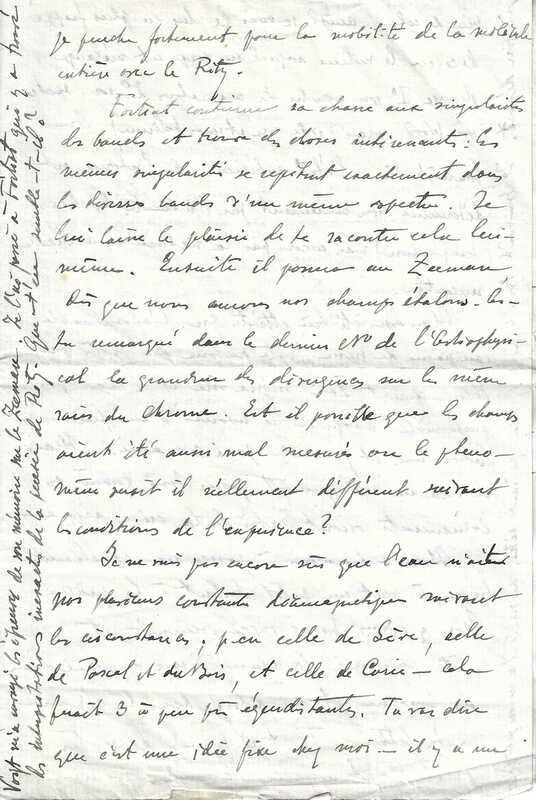 je penche fortement pour la mobilité de la molécule
entière avec le Ritz.
Fortrat continue sa chasse aux singularités
des bandes et trouve des choses intéressantes : les
mêmes singularités se répètent exactement dans
les diverses bandes d'un même spectre. Je
lui laisse le plaisir de te raconter cela lui-
même. Ensuite il passera au Zeeman,
dès que nous aurons nos champs étalons. As-
tu remarqué dans le dernier No de l'Astrophysi-
cal la grandeur des divergences sur les mêmes
raies du chrome. Est il possible que les champs
aient été aussi mal mesurés ou le phéno-
mène serait il réellement différent suivant
les conditions de l'expérience ?
Je ne suis pas encore sûr que l'eau n'ait
pas plusieurs constantes diamagnétiques suivant
les circonstances ; p.ex celle de Sève, celle
de Pascal et du Bois, et celle de Curie — cela
ferait 3 à peu près équidistantes. Tu vas dire
que c'est une idée fixe chez moi — il y a un
Voigt m'a envoyé les épreuves de son mémoire sur le Zeeman. Je l'ai passé à Fortrat qui y a trouvé
les interprétations inexactes de la pensée de Ritz. Que t'en semble-t-il ?